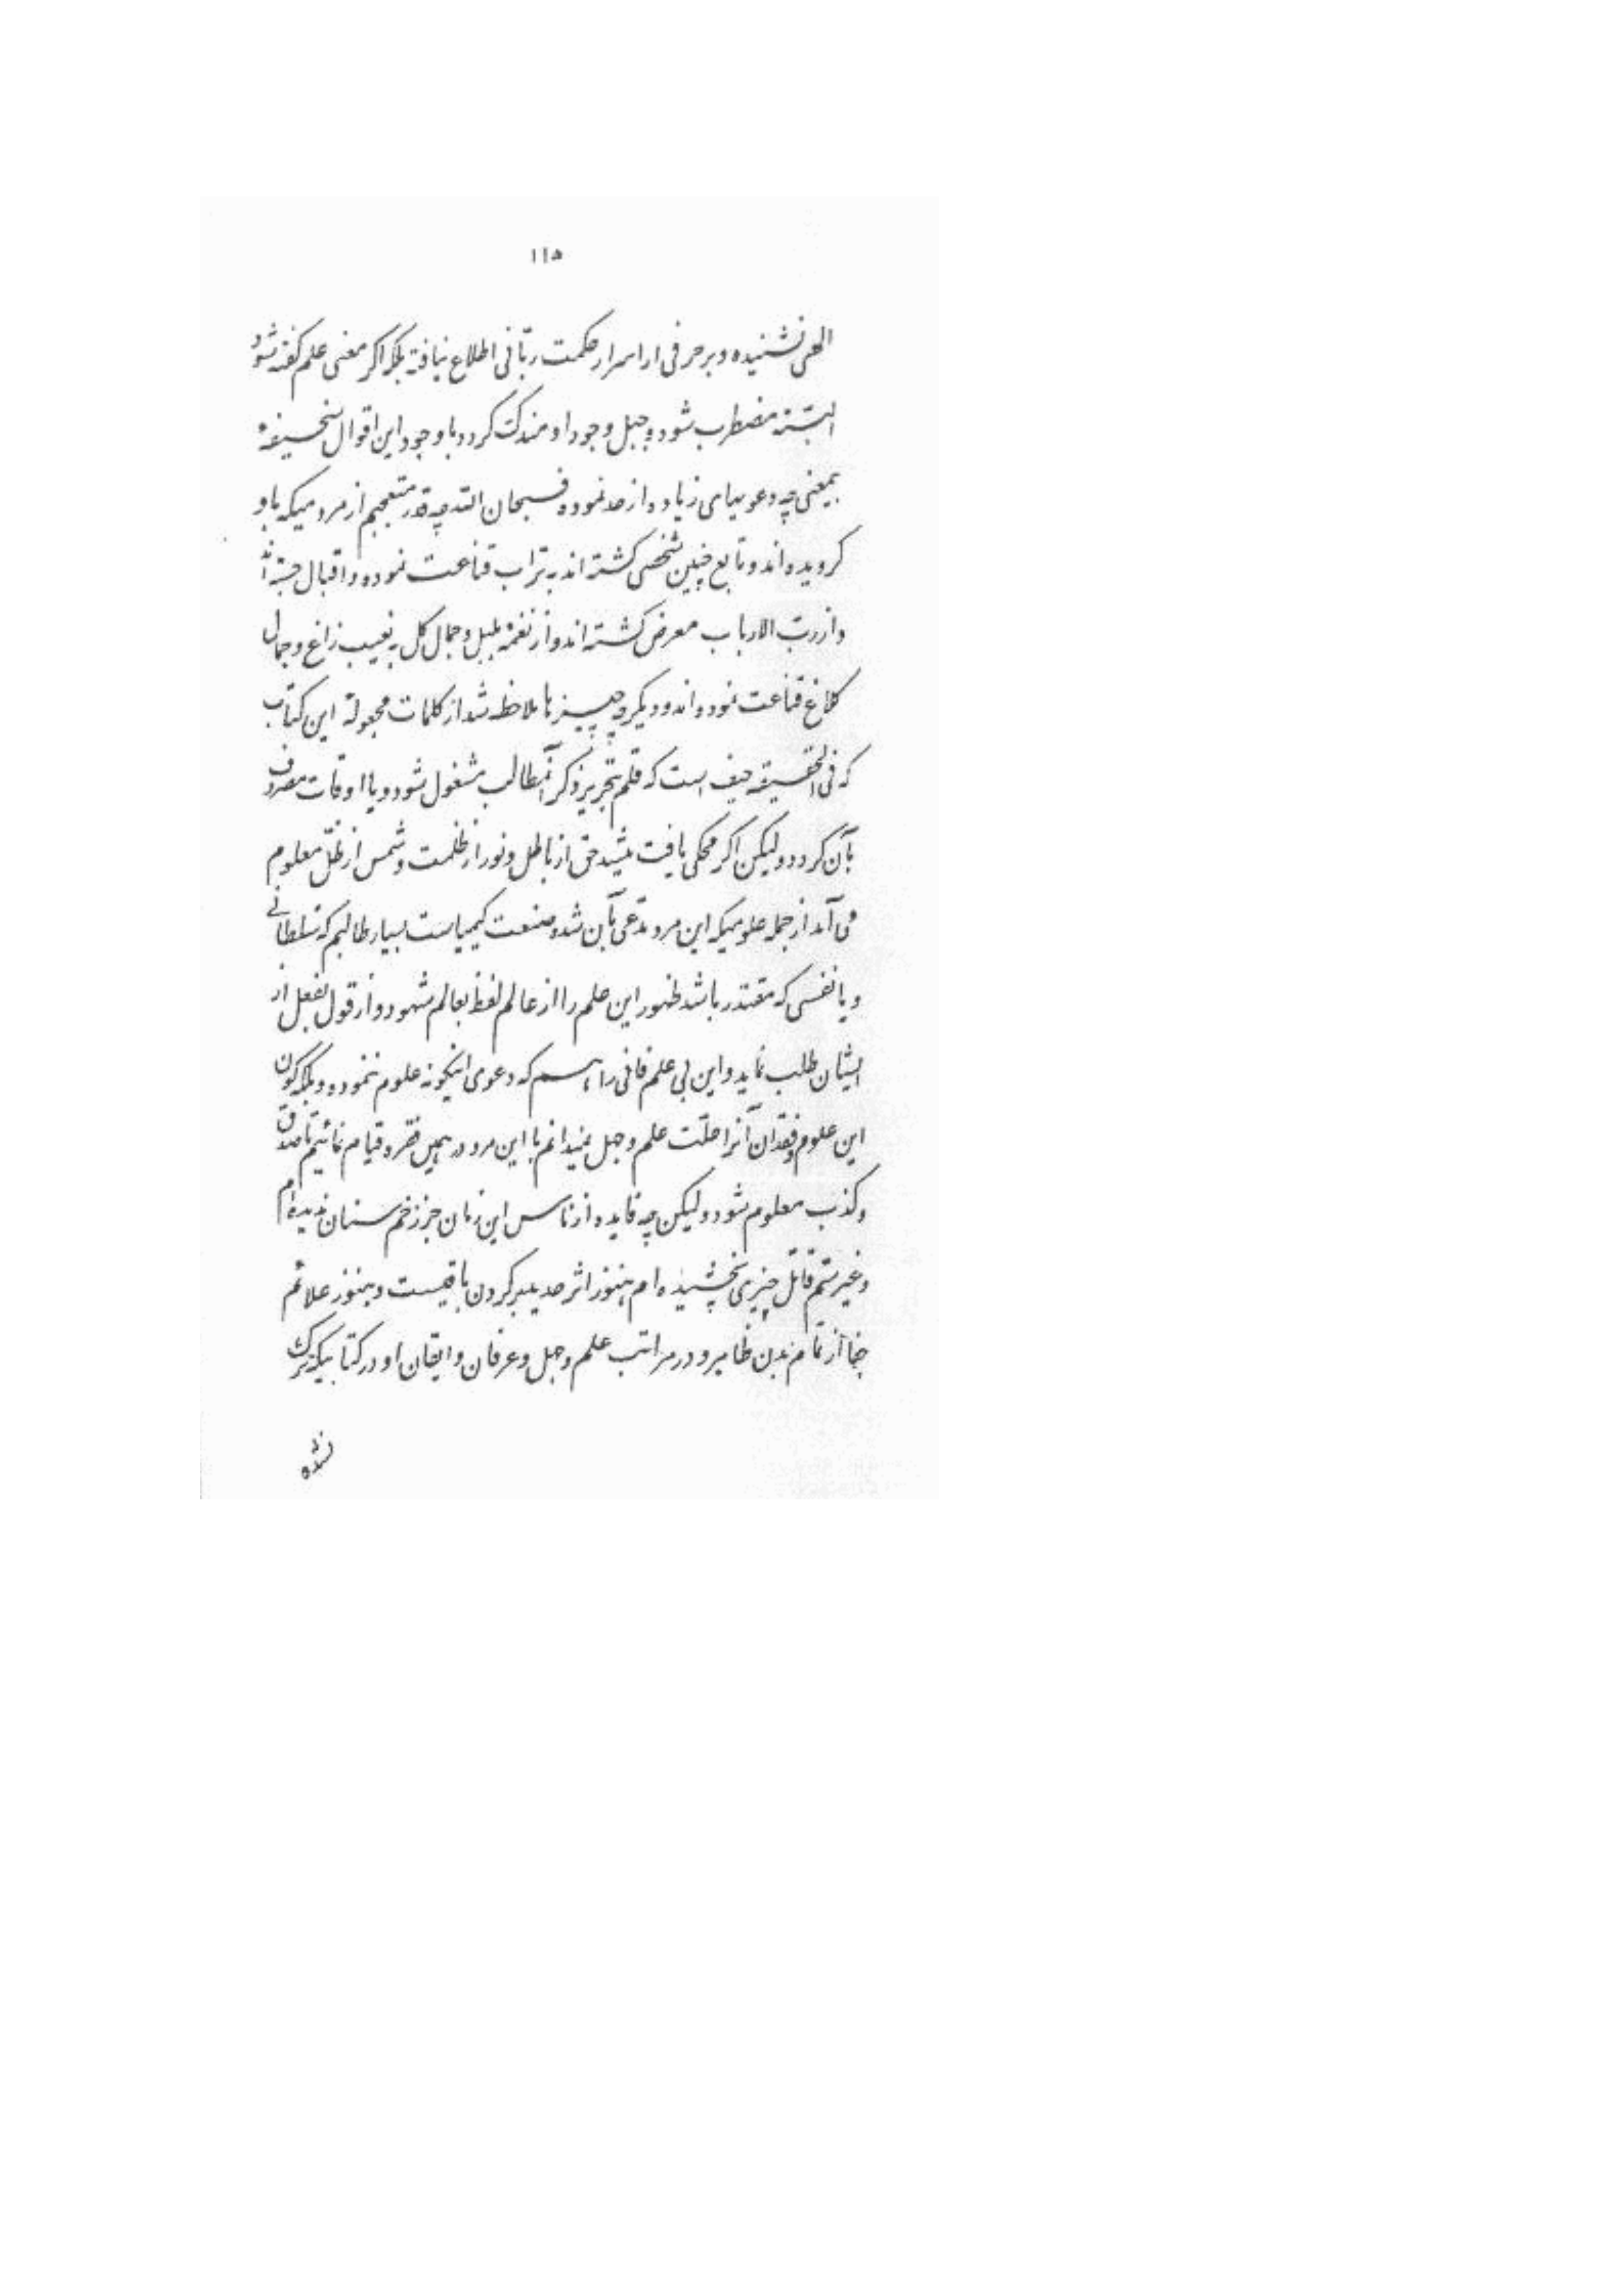 ۱۱۵
الهی نشنیده و بر حرفی از اسرار حکمت ربّانی اطلاع نیافته بلکه اگر معنی علم گفته شود
البتّه مضطرب شود و جبل وجود او مندک گردد با وجود این اقوال سخیفهٔ
بیمعنی چه دعویهای زیاده از حد نموده فسبحان الله چه قدر متعجبم از مردمیکه باو
گرویده‌اند و تابع چنین شخصی گشته‌اند بتراب قناعت نموده و اقبال جسته‌اند
و از ربّ الارباب معرض گشته‌اند و از نغمهٔ بلبل و جمال گل به نعیب زاغ و جمال
کلاغ قناعت نموده‌اند و دیگر چه چیزها ملاحظه شد از کلمات مجعولهٔ این کتاب
که فی الحقیقه حیف است که قلم بتحریر ذکر آنمطالب مشغول شود و یا اوقات مصروف
بآن گردد و لیکن اگر محکی یافت میشد حق از باطل و نور از ظلمت و شمس از ظلّ معلوم
می‌آمد از جمله علومیکه این مرد مدّعی بآن شده صنعت کیمیاست بسیار طالبم که سلطانی
و یا نفسی که مقتدر باشد ظهور این علم را از عالم لفظ بعالم شهود و از قول بفعل از
ایشان طلب نماید و این بی علم فانی را هم که دعوی اینگونه علوم ننموده و بلکه کون
این علوم و فقدان آنرا علّت علم و جهل نمیدانم با این مرد در همین فقره قیام نمائیم تا صدق
و کذب معلوم شود و لیکن چه فایده از ناس این زمان جز زخم سنان ندیده‌ام
و غیر سمّ قاتل چیزی نچشیده‌ام هنوز اثر حدید بر گردن باقیست و هنوز علائم
جفا از تمام بدن ظاهر و در مراتب علم و جهل و عرفان و ایقان او در کتابیکه ترک
نشده